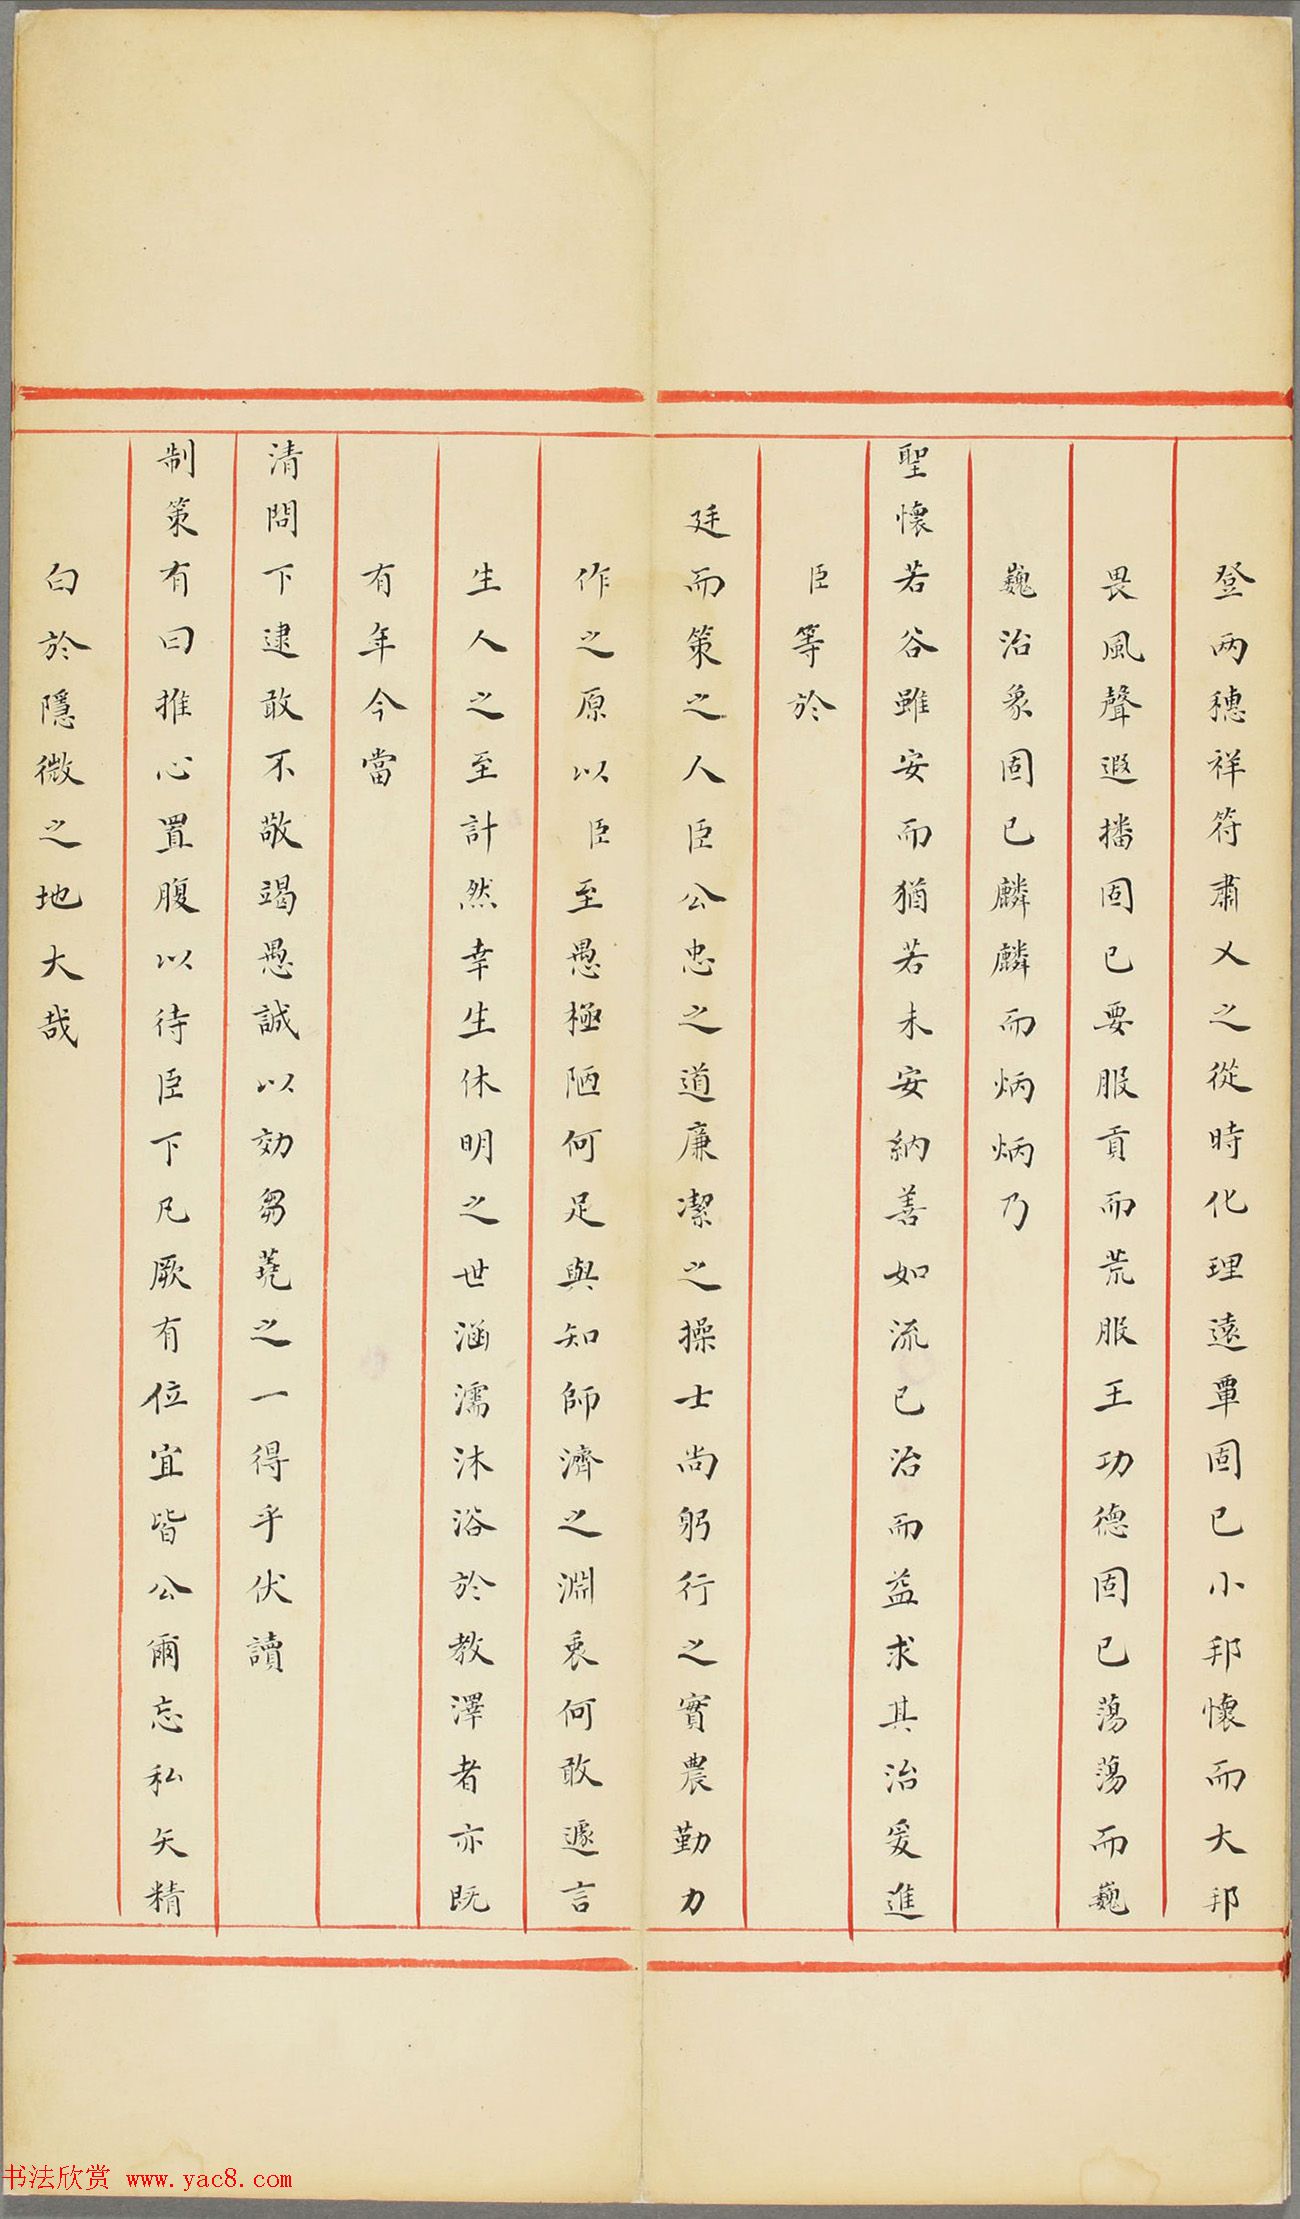 登兩穗祥符肅乂之從時化理遠覃固已小邦懷而大邦
畏風聲遐播固已要服貢而荒服王功德固已蕩蕩而巍
巍治象固已麟麟而炳炳乃
聖懷若谷雖安而猶若未安納善如流已治而益求其治爰進
臣等於
廷而策之人臣公忠之道廉潔之操士尚躬行之實農勤力
作之原以臣至愚極陋何足與知師濟之淵衷何敢遽言
生人之至計然幸生休明之世涵濡沐浴於教澤者亦既
有年今當
清問下逮敢不敬竭愚誠以効芻蕘之一得乎伏讀
制策有曰推心置腹以待臣下凡厥有位宜皆公爾忘私矢精
白於隱微之地大哉
书法欣赏 www.yac8.com